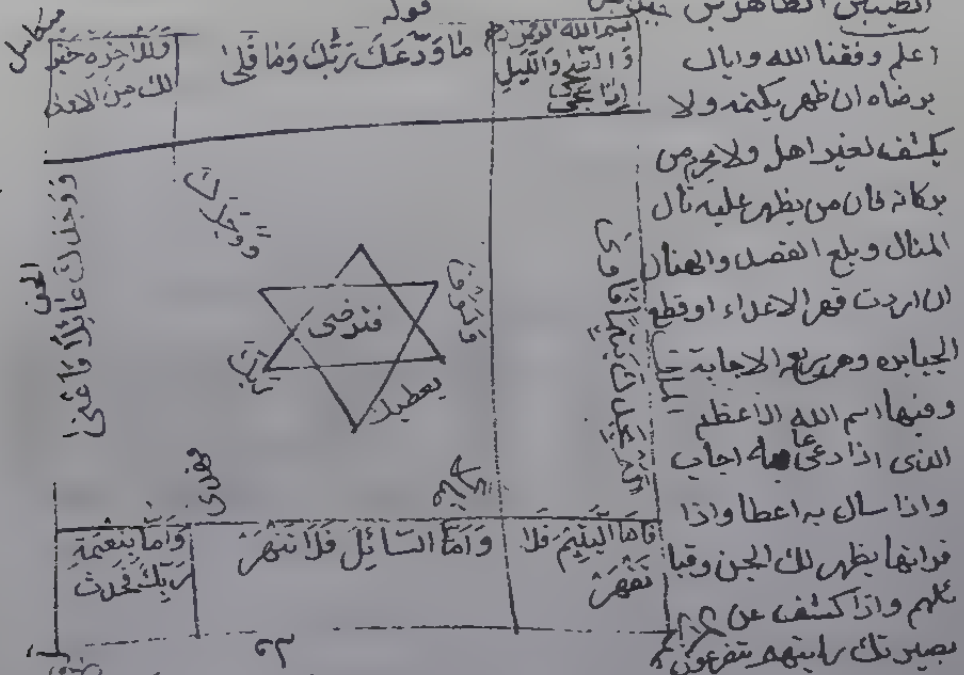 الطيبين الطاهرين
اعلم وفقنا الله واياك
برضاه ان ظهر يكتمه ولا
يكشف لغير اهل ولا يحرم من
بركاته فان من يظهر عليه نال
المنال وبلغ الفضل
ان اردت قهر الاعداء او قطع
الجبابره وهي سريع الاجابة
وفيها اسم الله الاعظم
الذى اذا دعى به اجاب
واذا سال به اعطا واذا
قراتها يظهر لك الجن وقبا
ئلهم واذا كشف عن
بصيرتك رايتهم يتفرعون
قوله
ميكائيل
بسم الله
والضحى والليل
اذا سجى
مَا وَدَّعَكَ رَبُّكَ وَمَا قَلَىٰ
وَلَلآخِرَةِ خَيْرٌ
لك مِنَ الاولى
اَلَمْ يَجِدْكَ يَتِيمًا فَاوَىٰ
وَوَجَدَكَ
وَلَسَوْفَ
يعطيك
رَبُّكَ
فترضى
فهدى
وَوَجَدَكَ عَائِلًا فَاغْنَىٰ
فَامَّا الْيَتِيمَ فَلَا
تَقْهَرْ
وَاَمَّا السَّائِلَ فَلَا تَنْهَرْ
وَاَمَّا بِنِعْمَةِ
رَبِّكَ فَحَدِّثْ